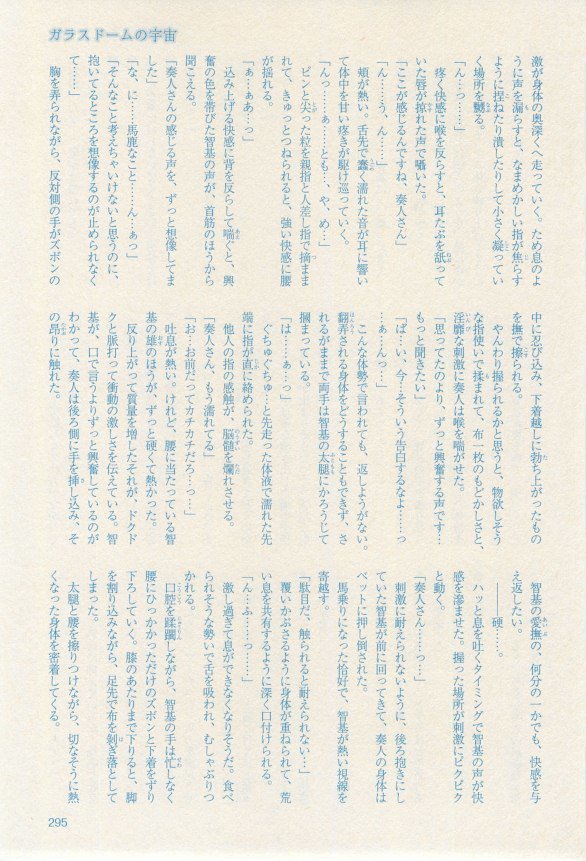 ガラスドームの宇宙
激が身体の奥深くへ走っていく。ため息のよ
うに声を漏らすと、なまめかしい指が焦らす
ように捏ねたり潰したりして小さく凝ってい
く場所を嬲る。
「ん…っ……」
疼く快感に喉を反らすと、耳たぶを舐って
いた唇が掠れた声で囁いた。
「ここが感じるんですね、奏人さん」
「ん……う、ん……」
頬が熱い。舌先で蠢く濡れた音が耳に響い
て体中を甘い疼きが駆け巡っていく。
「んっ……ぁ……とも…、や、め…」
ピンと尖った粒を親指と人差し指で摘まま
れて、きゅっとつねられると、強い快感に腰
が揺れる。
「ぁ…ぁあ…っ」
込み上げる快感に背を反らして喘ぐと、興
奮の色を帯びた智基の声が、首筋のほうから
聞こえる。
「奏人さんの感じる声を、ずっと想像してま
した」
「な、に……馬鹿なこと……ん…ぁっ」
「そんなこと考えちゃいけないと思うのに、
抱いてるところを想像するのが止められなく
て……」
胸を弄られながら、反対側の手がズボンの
中に忍び込み、下着越しに勃ち上がったもの
を撫で擦られる。
やんわり握られるかと思うと、物欲しそう
な指使いで揉まれて、布一枚のもどかしさと、
淫靡な刺激に奏人は喉を喘がせた。
「思ってたのより、ずっと興奮する声です…
もっと聞きたい」
「ば…い、今…そういう告白するなよ……っ
…ぁ…んっ…」
こんな体勢で言われても、返しようがない。
翻弄される身体をどうすることもできず、さ
れるがままで両手は智基の太腿にかろうじて
摑まっている。
「は……ぁ…っ」
ぐちゅぐちゅ…と先走った体液で濡れた先
端に指が直に絡められた。
他人の指の感触が、脳髄を爛れさせる。
「奏人さん、もう濡れてる」
「お…お前だってカチカチだろ…っ…」
吐息が熱い。けれど、腰に当たっている智
基の雄のほうが、ずっと硬くて熱かった。
反り上がって質量を増したそれが、ドクド
クと脈打って衝動の激しさを伝えている。智
基が、口で言うよりずっと興奮しているのが
わかって、奏人は後ろ側に手を挿し込み、そ
の昂りに触れた。
智基の愛撫の、何分の一かでも、快感を与
え返したい。
――硬……。
ハッと息を吐くタイミングで智基の声が快
感を滲ませた。握った場所が刺激にビクビク
と動く。
「奏人さん……っ…」
刺激に耐えられないように、後ろ抱きにし
ていた智基が前に回ってきて、奏人の身体は
ベットに押し倒された。
馬乗りになった恰好で、智基が熱い視線を
寄越す。
「駄目だ、触られると耐えられない…」
覆いかぶさるように身体が重ねられて、荒
い息を共有するように深く口付けられる。
「ん…ふ……っ……」
激し過ぎて息ができなくなりそうだ。食べ
られそうな勢いで舌を吸われ、むしゃぶりつ
かれる。
口腔を蹂躙しながら、智基の手は忙しなく
腰にひっかかっただけのズボンと下着をずり
下ろしていく。膝のあたりまで下りると、脚
を割り込みながら、足先で布を剝ぎ落として
しまった。
太腿と腰を擦りつけながら、切なそうに熱
くなった身体を密着してくる。
295